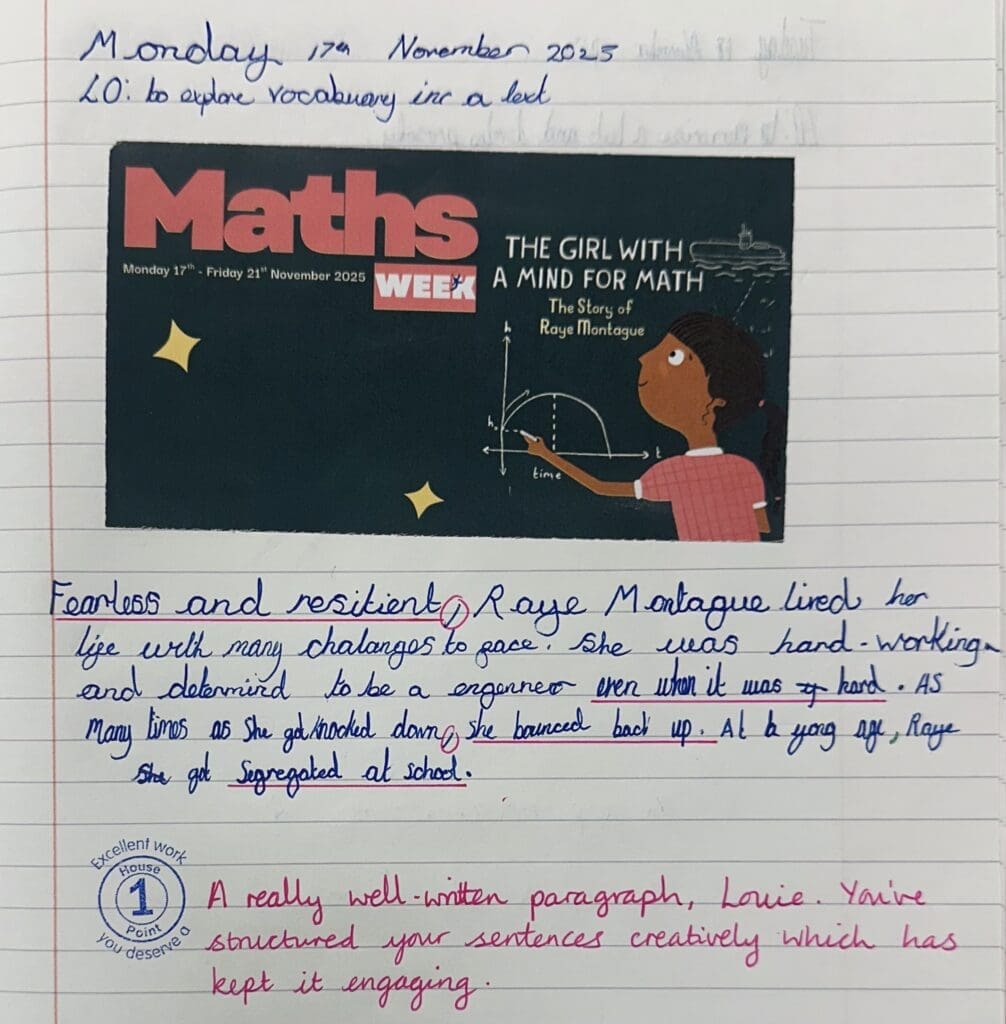 Monday 17th November 2025
LO: to explore vocabuary inr a text
Maths
Monday 17th - Friday 21st November 2025
WEEK
THE GIRL WITH
A MIND FOR MATH
The Story of
Raye Montague
h
h.
t
time
Fearless and resilient, Raye Montague lived her
life with many chalanges to face. She was hard-working
and determind to be a engenner even when it was hard. AS
Many times as She got knocked down, she bounced back up. At a yong age, Raye
She got Segregated at school.
Excellent work
House
1
Point
you deserve a
A really well-written paragraph, Louie. You've
structured your sentences creatively which has
kept it engaging.